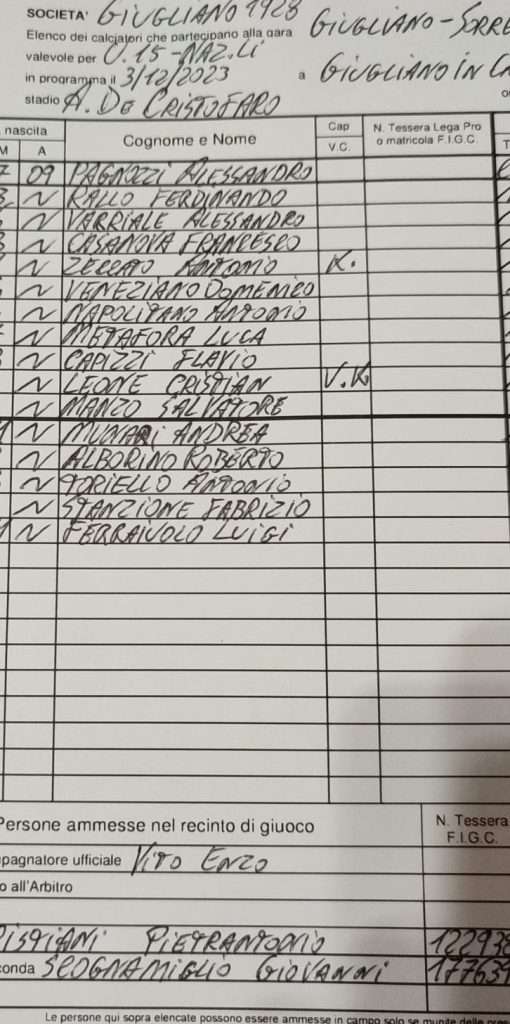 SOCIETA' GIUGLIANO 1928
Elenco dei calciatori che partecipano alla gara GIUGLIANO - SORRE
valevole per U.15 - NAZ.LI
in programma il 3/12/2023 a GIUGLIANO IN CA
stadio A. De CRISTOFARO
nascita Cognome e Nome Cap N. Tessera Lega Pro
M A V.C. o matricola F.I.G.C. T
09 PAGNOZZI ALESSANDRO
N RALLO FERDINANDO
N VARRIALE ALESSANDRO
N CASANOVA FRANCESCO
N ZECCATO ANTONIO K.
N VENEZIANO DOMENICO
N NAPOLITANO ANTONIO
N METAFORA LUCA
N CAPIZZI FLAVIO
N LEONE CRISTIAN V.K.
N MANZO SALVATORE
N MUNARI ANDREA
N ALBORINO ROBERTO
N TORIELLO ANTONIO
N STANZIONE FABRIZIO
N FERRAIUOLO LUIGI
Persone ammesse nel recinto di giuoco N. Tessera
F.I.G.C.
pagnatore ufficiale VITO ENZO
o all'Arbitro
ISTIANI PIETRANTONIO 122938
conda SCOGNAMIGLIO GIOVANNI 177631
Le persone qui sopra elencate possono essere ammesse in campo solo se munite delle